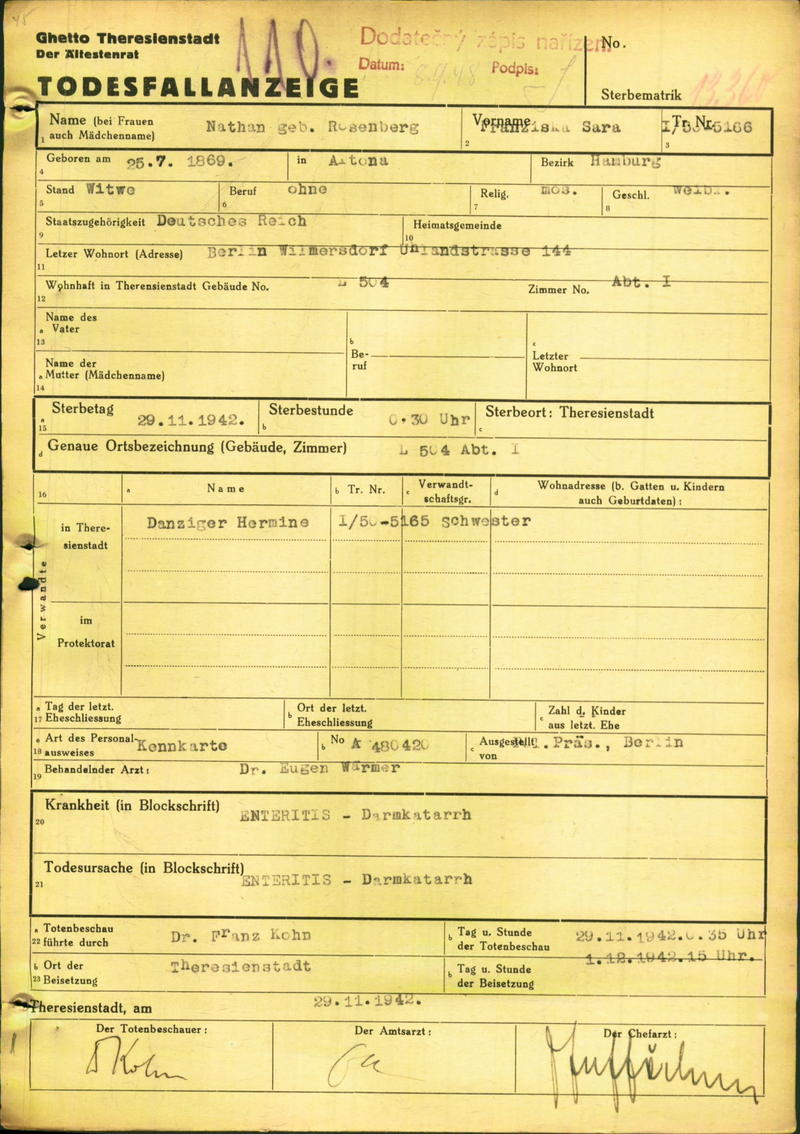 Ghetto Theresienstadt
Der Ältestenrat
TODESFALLANZEIGE
110.
Dodatečný zápis nařízen
Datum: 8.9.48 Podpis:
No.
Sterbematrik 13.360
Name (bei Frauen auch Mädchenname) Nathan geb. Rosenberg
1
Vorname Franziska Sara
2
Tr. Nr. I/50-5166
3
Geboren am 25.7. 1869. in Altona Bezirk Hamburg
4
Stand Witwe Beruf ohne Relig. mos. Geschl. weibl.
5 6 7 8
Staatszugehörigkeit Deutsches Reich Heimatsgemeinde
9 10
Letzer Wohnort (Adresse) Berlin Wilmersdorf Uhlandstrasse 144
11
Wohnhaft in Therensienstadt Gebäude No. L 504 Zimmer No. Abt. I
12
Name des
a Vater
13
b
Beruf
c
Letzter
Wohnort
Name der
a Mutter (Mädchenname)
14
Sterbetag 29.11.1942. Sterbestunde 0.30 Uhr Sterbeort: Theresienstadt
a 15 b c
d Genaue Ortsbezeichnung (Gebäude, Zimmer) L 504 Abt. I
16 a Name b Tr. Nr. c Verwandtschaftsgr. d Wohnadresse (b. Gatten u. Kindern auch Geburtdaten) :
Verwandte
in Theresienstadt Danziger Hermine I/50-5165 Schwester
im
Protektorat
a Tag der letzt.
17 Eheschliessung
b Ort der letzt.
Eheschliessung
c Zahl d. Kinder
aus letzt. Ehe
a Art des Personalausweises Kennkarte b No A 480420 c Ausgestellt von Pol. Präs., Berlin
18
Behandelnder Arzt : Dr. Eugen Wärmer
19
Krankheit (in Blockschrift) ENTERITIS - Darmkatarrh
20
Todesursache (in Blockschrift) ENTERITIS - Darmkatarrh
21
a Totenbeschau
22 führte durch Dr. Franz Kohn
b Tag u. Stunde
der Totenbeschau 29.11.1942.0.35 Uhr
b Ort der
23 Beisetzung Theresienstadt
b Tag u. Stunde
der Beisetzung 1.12.1942.15 Uhr.
Theresienstadt, am 29.11.1942.
Der Totenbeschauer : Der Amtsarzt : Der Chefarzt :
Kohn